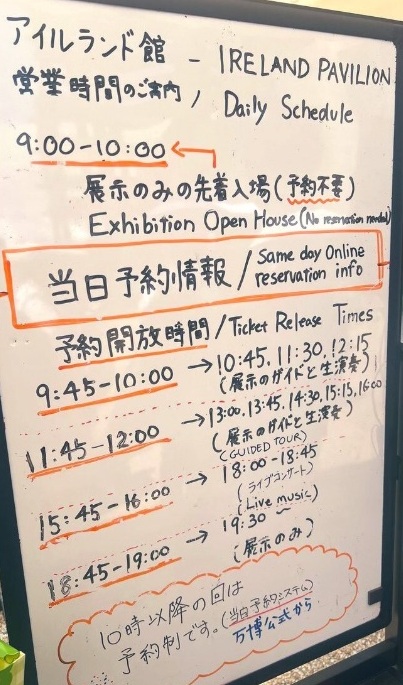 アイルランド館 - IRELAND PAVILION
営業時間のご案内 / Daily Schedule
9:00-10:00
展示のみの先着入場(予約不要)
Exhibition Open House (No reservation needed)
当日予約情報 / Same day Online reservation info
予約開放時間 / Ticket Release Times
9:45-10:00 → 10:45, 11:30, 12:15
(展示のガイドと生演奏)
11:45-12:00 → 13:00, 13:45, 14:30, 15:15, 16:00
(展示のガイドと生演奏)
(GUIDED TOUR)
15:45-16:00 → 18:00-18:45
(ライブコンサート)
(Live music)
18:45-19:00 → 19:30~
(展示のみ)
10時以降の回は
予約制です。(当日予約システム)
万博公式から